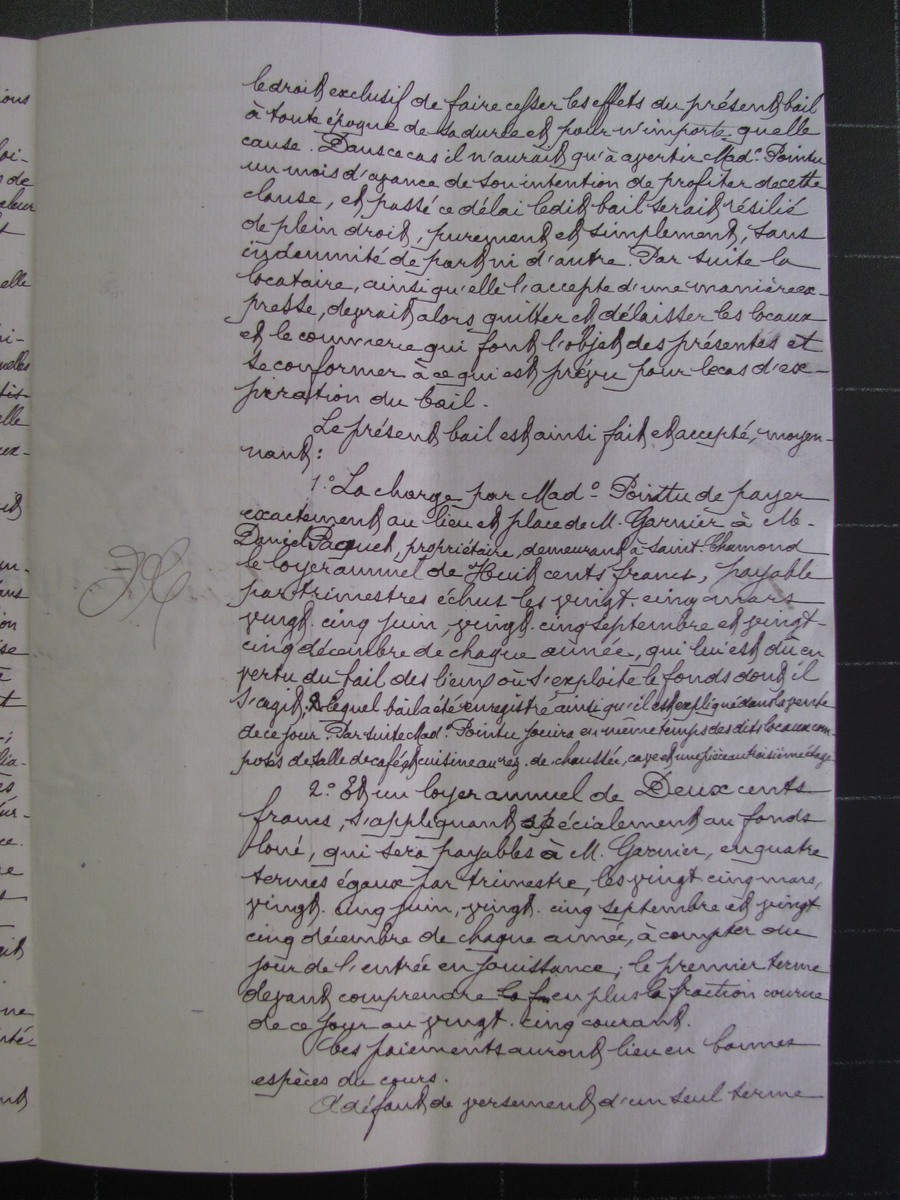 le droit exclusif de faire cesser les effets du présent bail
à toute époque de sa durée et pour n'importe quelle
cause. Dans ce cas il n'aurait qu'à avertir Made Pointu
un mois d'avance de son intention de profiter de cette
clause, et, passé ce délai ledit bail serait résilié
de plein droit, purement et simplement, sans
indemnité de part ni d'autre. Par suite la
locataire, ainsi qu'elle l'accepte d'une manière ex-
presse, devrait alors quitter et délaisser les locaux
et le commerce qui font l'objet des présentes et
se conformer à ce qui est prévu pour le cas d'ex-
piration du bail.
Le présent bail est ainsi fait et accepté, moyen-
nant :
1.° La charge par Made Pointu de payer
exactement au lieu et place de M. Garnier à M.
Daniel Paquet, propriétaire, demeurant à Saint-Chamond
le loyer annuel de Huit cents francs, payable
par trimestres échus les vingt-cinq mars
vingt-cinq juin, vingt-cinq septembre et vingt-
cinq décembre de chaque année, qui lui est dû en
vertu du bail des lieux où s'exploite le fonds dont il
s'agit, lequel bail a été enregistré ainsi qu'il est expliqué dans la vente
de ce jour. Par suite Made Pointu jouira en même temps des dits locaux com-
posés de salle de café, et cuisine au rez-de-chaussée, cave et une pièce au troisième étage
2.° Et un loyer annuel de Deux cents
francs, s'appliquant spécialement au fonds
loué, qui sera payables à M. Garnier, en quatre
termes égaux par trimestre, les vingt-cinq mars,
vingt-cinq juin, vingt-cinq septembre et vingt-
cinq décembre de chaque année, à compter du
jour de l'entrée en jouissance ; le premier terme
devant comprendre en plus la fraction courue
de ce jour au vingt-cinq courant.
Ces paiements auront lieu en bonnes
espèces du cours.
A défaut de versement d'un seul terme